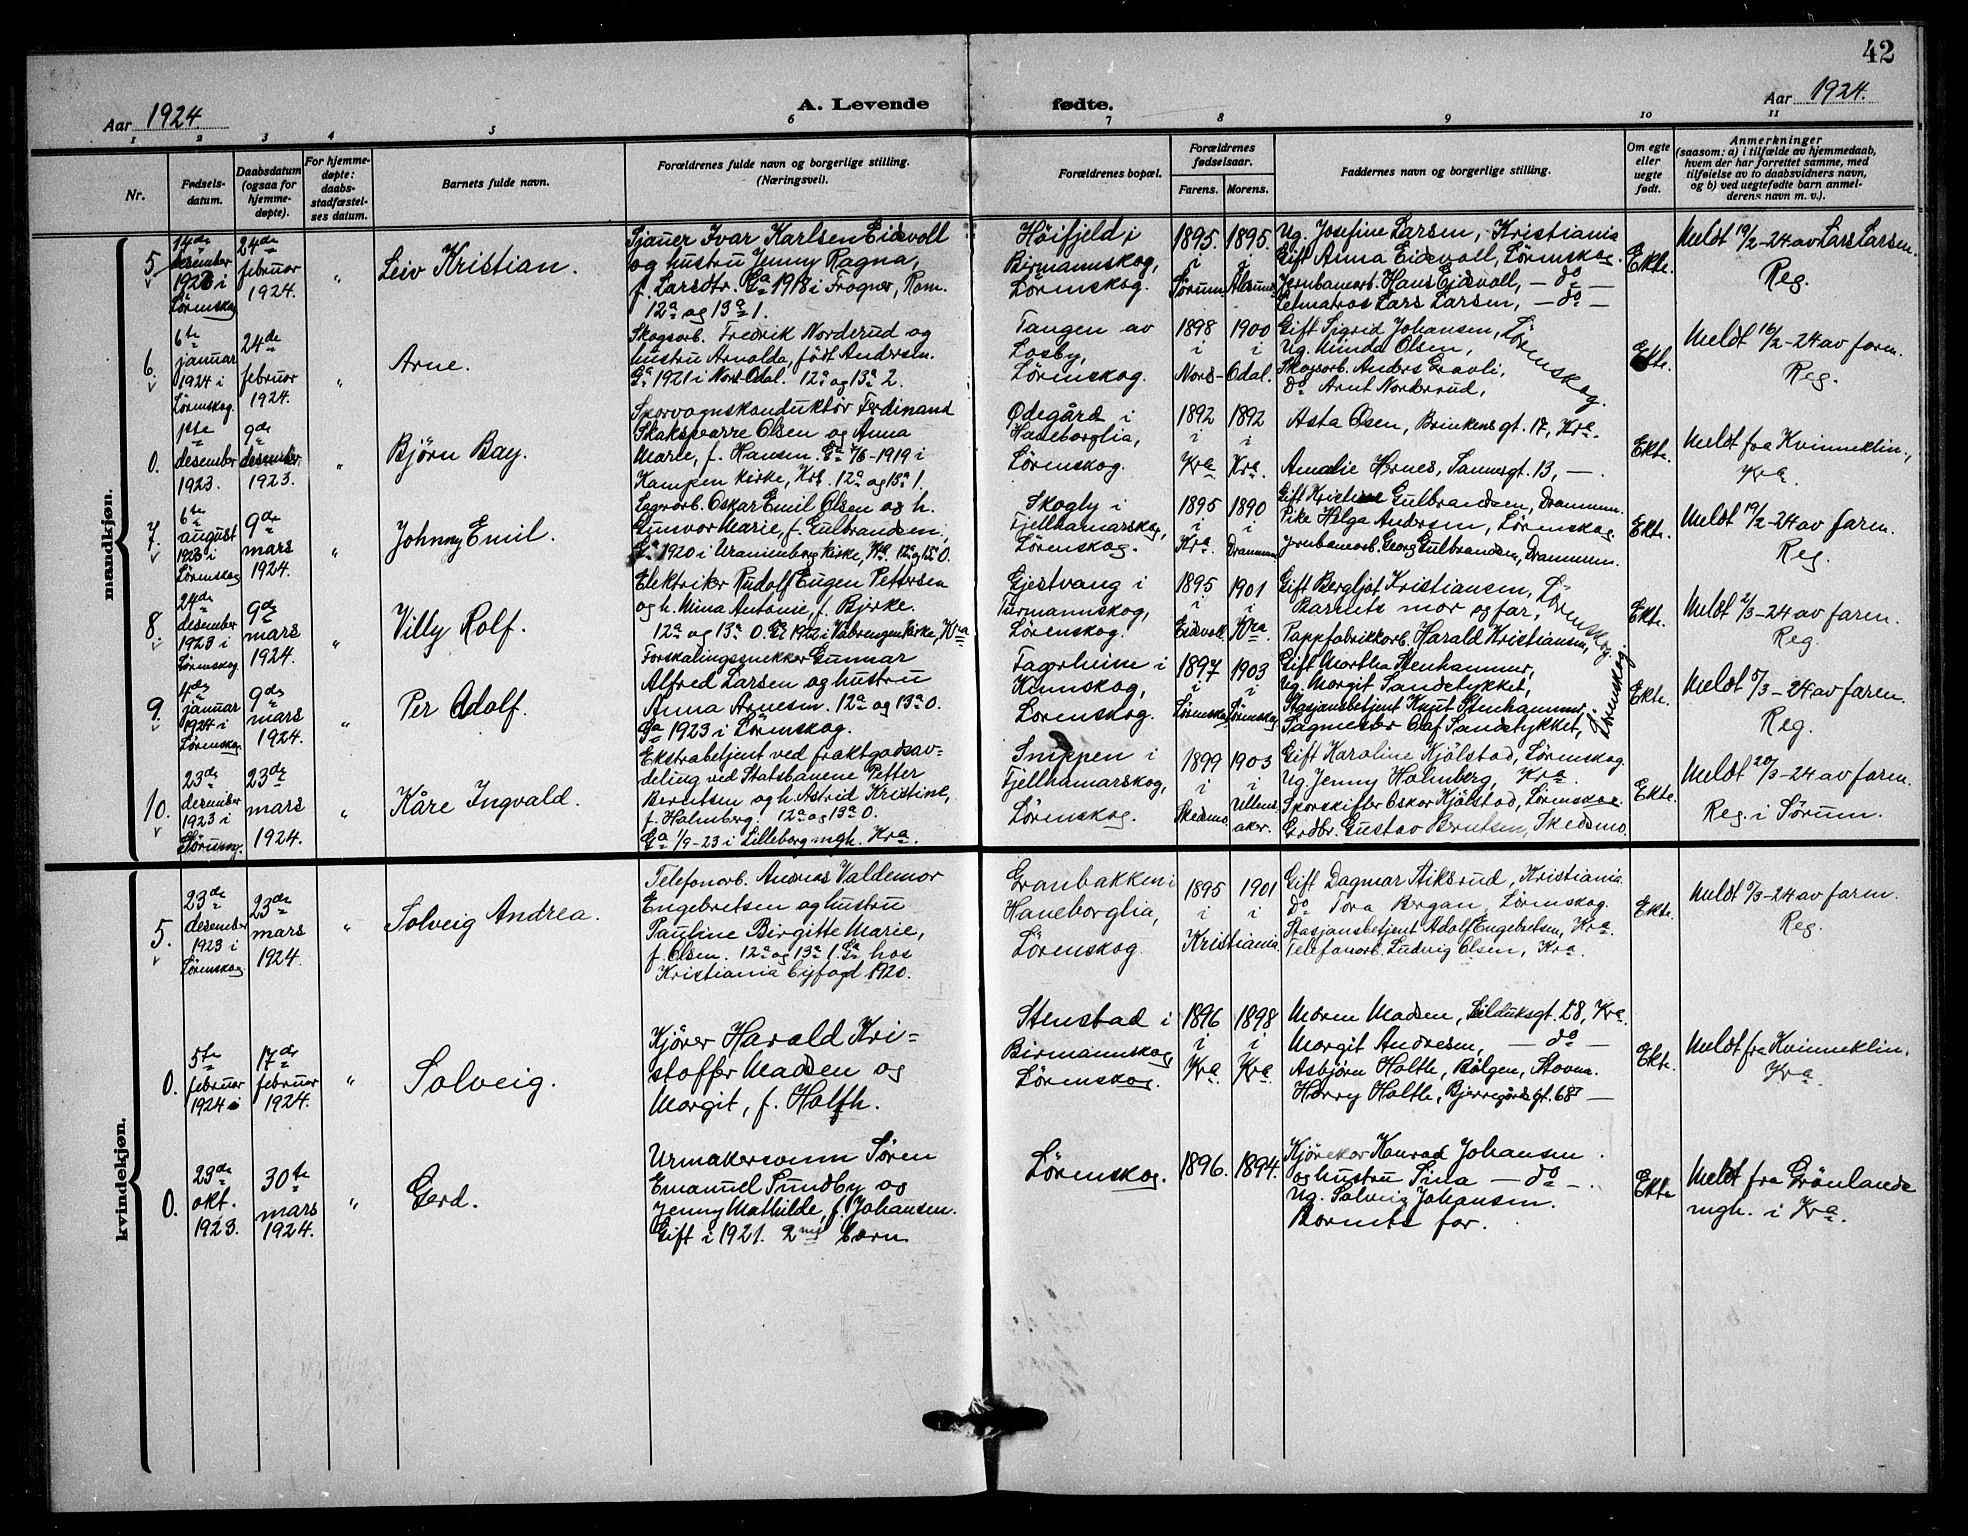 42
Aar 1924.
A. Levende fødte.
Aar 1924.
1 2 3 4 5 6 7 8 9 10 11
Nr.
Fødsels-
datum.
Daabsdatum
(ogsaa for
hjemme-
døpte).
For hjemme-
døpte:
daabs-
stadfæstel-
ses datum.
Barnets fulde navn.
Forældrenes fulde navn og borgerlige stilling.
(Næringsvei).
Forældrenes bopæl.
Forældrenes
fødselsaar.
Farens. Morens.
Faddernes navn og borgerlige stilling.
Om egte
eller
uegte
født.
Anmerkninger
(saasom: a) i tilfælde av hjemmedaab,
hvem der har forrettet samme, med
tilføielse av to daabsvidners navn,
og b) ved uegtefødte barn anmel-
derens navn m. v.).
mandkjøn.
5.
14de
desember
1923 i
Lörenskog
24de
februar
1924.
"
Leiv Kristian.
Sjauer Ivar Karlsen Eidsvoll
og hustru Jenny Ragna,
f. Larsdtr. Ga 1918 i Frogner, Rom.
12a og 13a 1.
Höifjeld i
Birmannskog,
Lörenskog.
1895. 1895.
i i
Sørum
Ug. Josefine Larsen, Kristiania
Gift Anna Eidsvoll, Lörenskog
Jernbanearb. Hans Eidsvoll, — do —
Lars Larsen, — do —
Ekte.
Meldt 19/2-24 av Lars Larsen.
Reg.
6.
6te
januar
1924 i
Lörenskog.
24de
februar
1924.
"
Arne.
Skogsarb. Fredrik Norderud og
hustru Arnolda, født Andersen.
Ga 1921 i Nord-Odal. 12a og 13a 2.
Tangen av
Losby,
Lörenskog.
1898 1900
i i
Nord-Odal.
Gift Sigrid Johansen,
Ug. Minda Olsen,
Skogsarb. Anders Gravli,
do Arnt Norderud,
Lörenskog.
Ekte.
Meldt 16/2-24 av faren.
Reg.
0.
1ste
desember
1923.
9de
desember
1923.
"
Björn Bay.
Sporvognskonduktör Ferdinand
Skaksparre Olsen og Anna
Marie, f. Hansen. Ga 7/6-1919 i
Kampen kirke, Kra. 12a og 13a 1.
Ødegård i
Haneborglia,
Lörenskog.
1892 1892
i i
Kra Kra.
Asta Olsen, Brinkens gt. 17, Kra.
Amalie Hernes, Sannergt. 13, —
Ekte.
Meldt fra Kvinneklin.,
Kra.
7.
6te
august
1923 i
Lörenskog
9de
mars
1924.
"
Johnny Emil.
Lagerarb. Oskar Emil Olsen og h.
Gunvor Marie, f. Gulbrandsen,
Ga 1920 i Uranienborg Kirke, Kra. 12a og 13a 0.
Skogly i
Fjellhamarskog,
Lörenskog.
1895 1890
i i
Kra. Drammen
Gift Kristine Gulbrandsen, Drammen.
Pike Helga Andersen, Lörenskog.
Jernbanearb. Georg Gulbrandsen, Drammen.
Ekte.
Meldt 19/2-24 av faren.
Reg.
8.
24de
desember
1923 i
Lörenskog
9de
mars
1924.
"
Villy Rolf.
Elektriker Rudolf Eugen Pettersen
og h. Mina Antonie, f. Bjerke.
12a og 13a 0. Ga 1922 i Vålerengen Kirke, Kra
Gjestvang i
Lörenskog.
1895 1901
i i
Eidsvoll. Kra
Gift Bergljot Kristiansen,
Barnets mor og far,
Pappfabrikkarb. Harald Kristiansen,
Lörenskog.
Ekte.
Meldt 2/3-24 av faren.
Reg.
9.
4de
januar
1924 i
Lörenskog.
9de
mars
1924.
"
Per Adolf.
Forskalingssnekker Gunnar
Alfred Larsen og hustru
Anna Arnesen. 12a og 13a 0.
Ga 1923 i Lörenskog.
Fagerheim i
Kinnskog,
Lörenskog.
1897 1903
i i
Lörenskog Lörenskog
Gift Martha Stenhammer,
Ug. Margit Sandstykket,
Stasjonsbetjent Knut Stenhammer,
Sagmester Olaf Sandstykket,
Lörenskog.
Ekte.
Meldt 5/3-24 av faren.
Reg.
10.
23de
desember
1923 i
Sörum.
23de
mars
1924.
"
Kåre Ingvald.
Ekstrabetjent ved fraktgodsav-
deling ved Statsbanene Petter
Berntsen og h. Astrid Kristine,
f. Holmberg. 12a og 13a 0.
Ga 1/9-23 i Lilleborg mgh. Kra.
Snippen i
Fjellhamarskog,
Lörenskog.
1899 1903
i i
Skedsmo Ullens-
aker.
Gift Karoline Kjölstad, Lörenskog
Ug. Jenny Holmberg, Kra.
Sporskifter Oskar Kjölstad, Lörenskog.
Grdbr. Gustav Berntsen, Skedsmo.
Ekte.
Meldt 20/3-24 av faren.
Reg. i Sörum.
kvindekjøn.
5.
23de
desember
1923 i
Lörenskog
23de
mars
1924.
"
Solveig Andrea.
Telefonarb. Andreas Valdemar
Engebretsen og hustru
Pauline Birgitte Marie,
f. Olsen. 12a og 13a 1. Ga hos
Kristiania byfogd 1920.
Granbakken i
Haneborglia,
Lörenskog.
1895 1901
i i
Kristiania.
Gift Dagmar Stiksrud, Kristiania.
do Tora Bergan, Lörenskog.
Stasjonsbetjent Adolf Engebretsen, Kra.
Telefonarb. Ludvig Olsen, Kra.
Ekte.
Meldt 5/3-24 av faren.
Reg.
0.
5te
februar
1924
17de
februar
1924.
"
Solveig.
Kjörer Harald Kri-
stoffer Madsen og
Margit, f. Holth.
Stenstad i
Birmannskog
Lörenskog.
1896 1898
i i
Kra. Kra.
Maren Madsen, Seilduksgt. 28, Kra.
Margit Andresen, — do —
Asbjörn Holthe, Bölgen, Stoven.
Harry Holthe, Bjerregårdsgt. 68 —
Ekte.
Meldt fra Kvinneklin.
Kra
0.
23de
okt.
1923.
30te
mars
1924.
"
Gerd.
Urmakersvenn Sören
Emanuel Sundby og
Jenny Mathilde, f. Johansen.
Gift i 1921. 2net barn.
Lörenskog.
1896. 1894.
Kjörekar Konrad Johansen
og hustru Sina — do —.
Ug. Solveig Johansen.
Barnets far.
Ekte
Meldt fra Grönlands
mgh. i Kra.